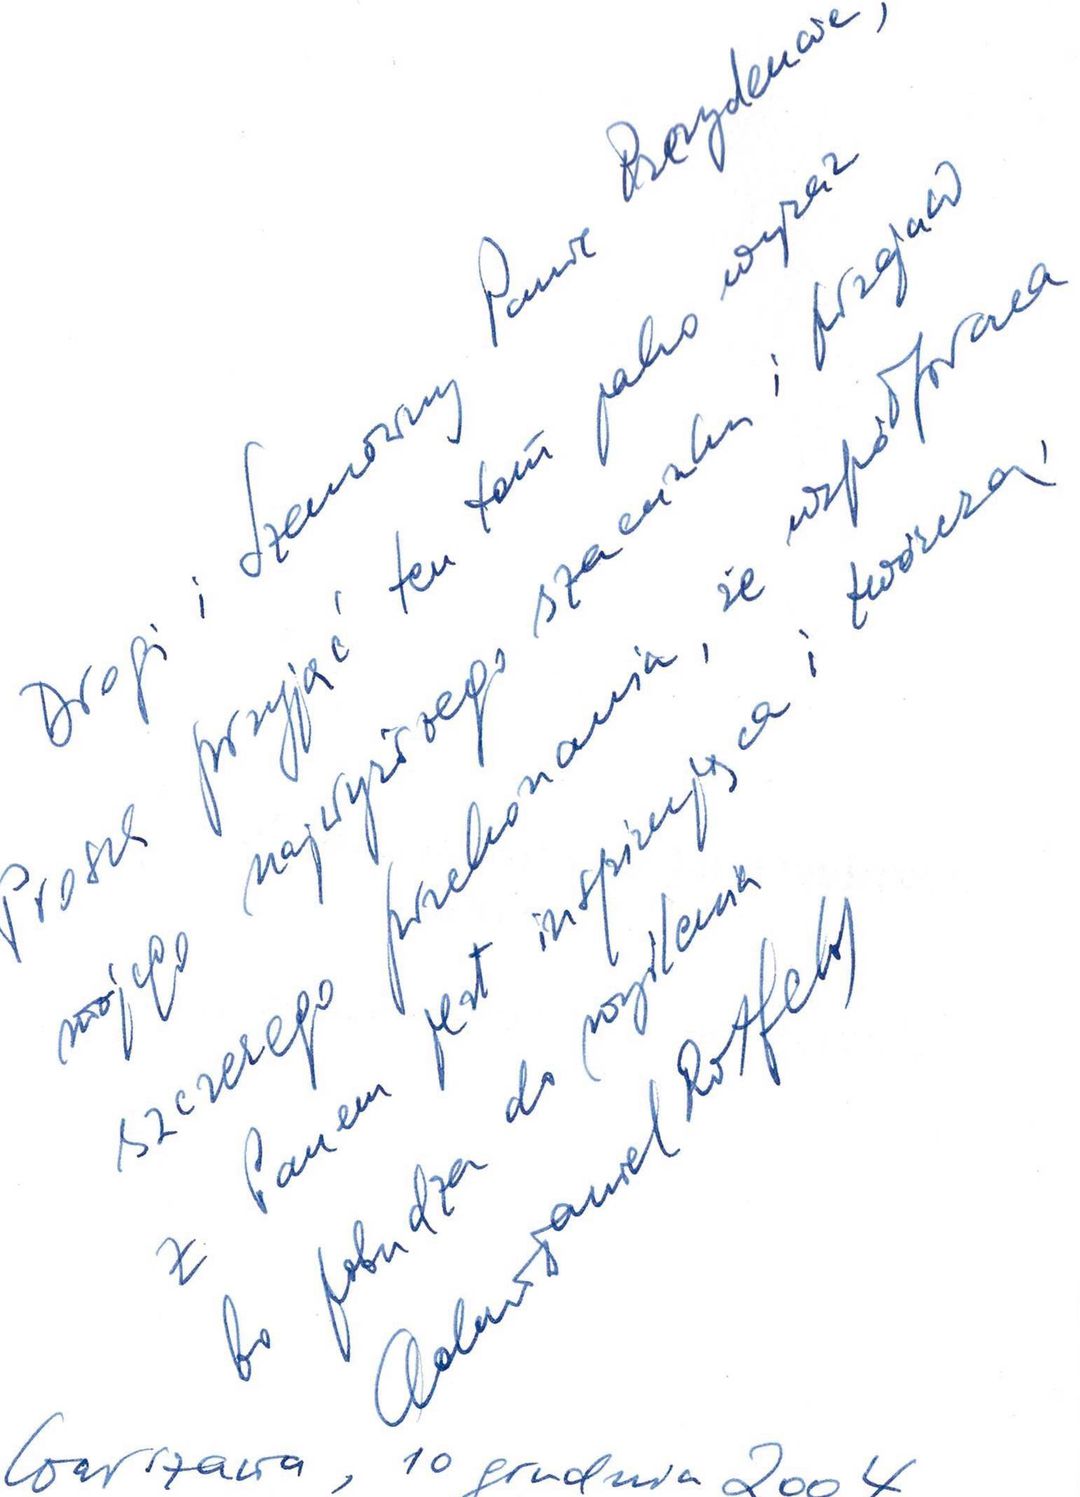 Drogi i Szanowny Panie Prezydencie,
Proszę przyjąć ten tom jako wyraz
mojego najwyższego szacunku i przejaw
szczerego przekonania, że współpraca
z Panem jest inspirująca i twórcza,
bo pobudza do myślenia
Adam Daniel Rotfeld
Warszawa, 10 grudnia 2004